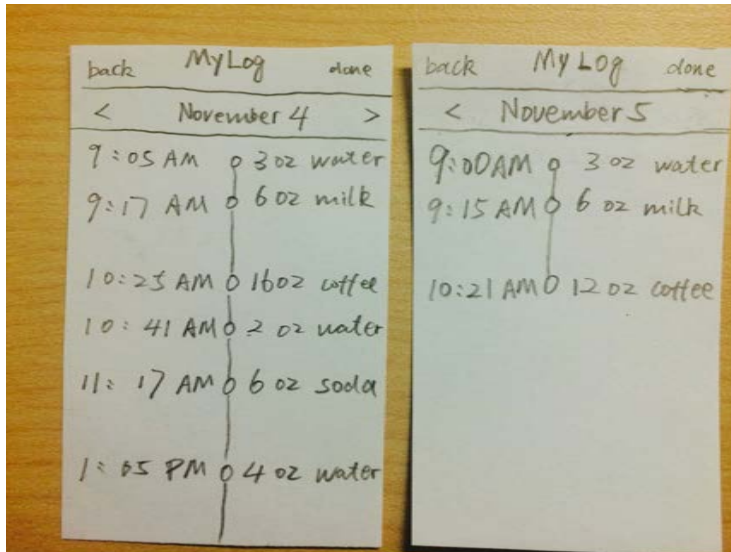 back My Log done
< November 4 >
9:05 AM 3 oz water
9:17 AM 6 oz milk
10:25 AM 16 oz coffee
10:41 AM 2 oz water
11:17 AM 6 oz soda
1:05 PM 4 oz water
back My Log done
< November 5
9:00 AM 3 oz water
9:15 AM 6 oz milk
10:21 AM 12 oz coffee